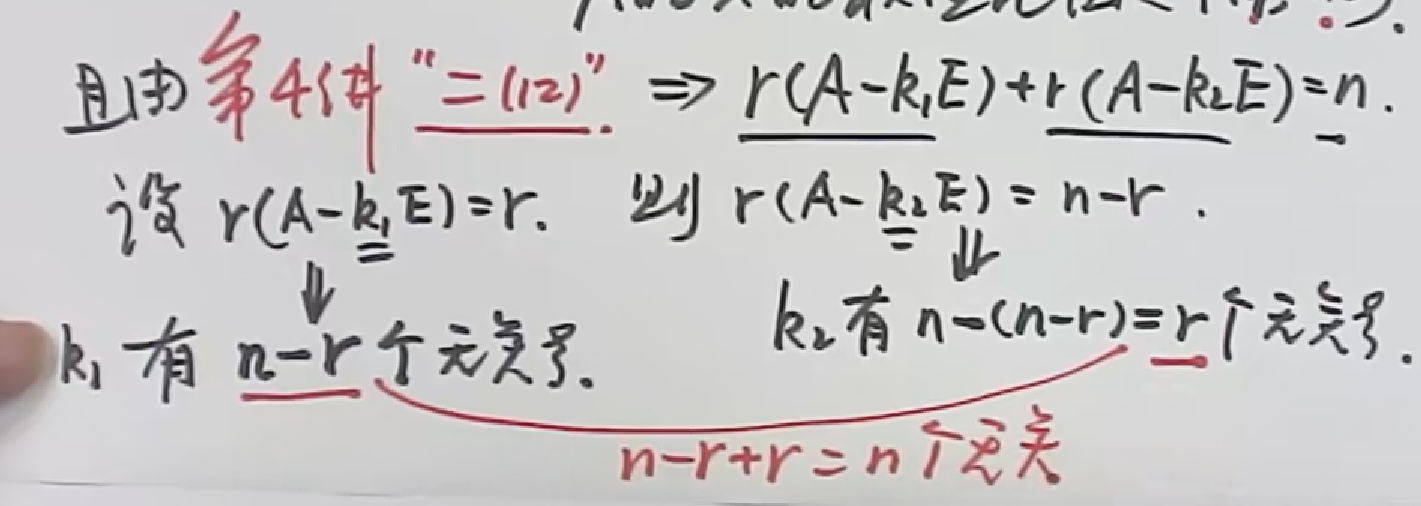 且由第4讲"二(12)" ⇒ r(A-k₁E)+r(A-k₂E)=n.
设 r(A-k₁E)=r. 则 r(A-k₂E)=n-r.
⇓ ⇓
k₁有 n-r个无关ξ. k₂有 n-(n-r)=r个无关ξ.
n-r+r=n个无关